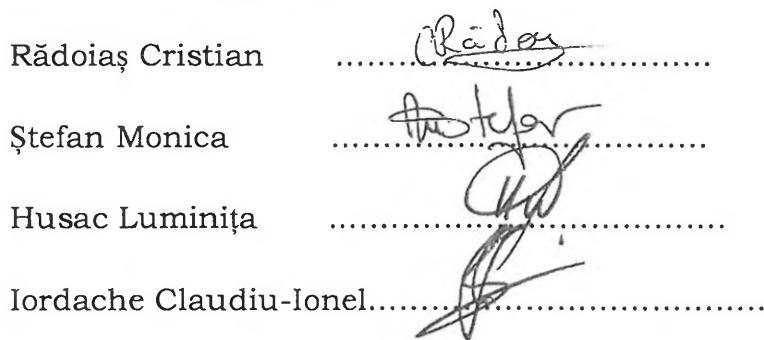 Rădoiaș Cristian ....................................
Ștefan Monica ....................................
Husac Luminița ......................................
Iordache Claudiu-Ionel......................................